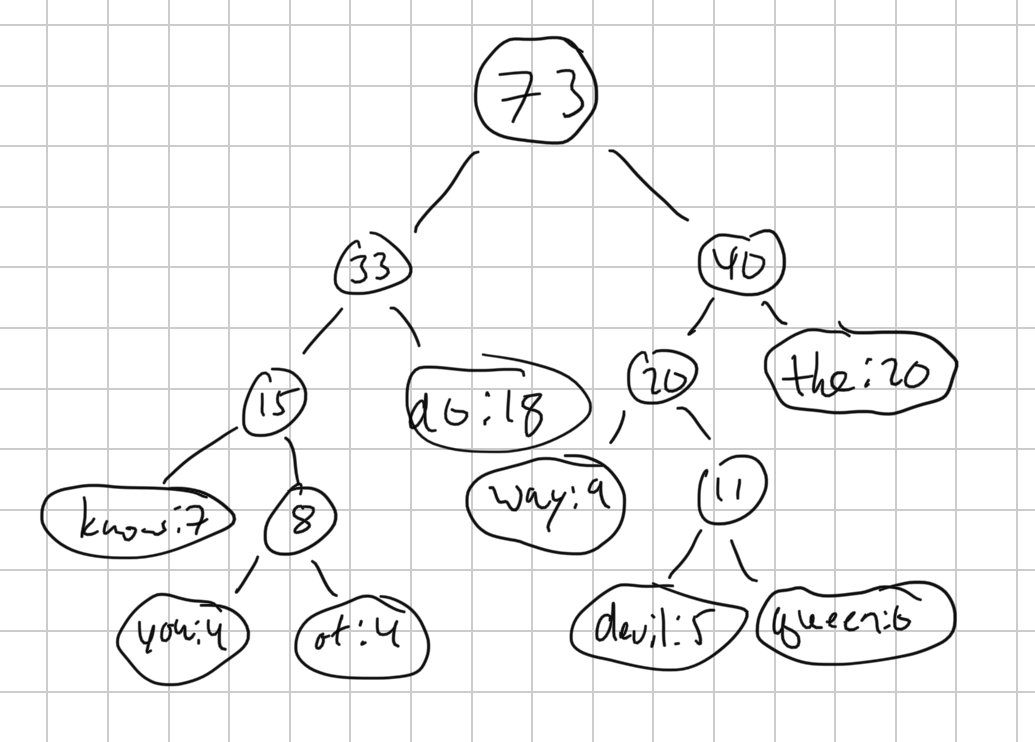 73
33
40
15
do:18
20
the:20
know:7
8
way:9
11
you:4
of:4
devil:5
queen:6